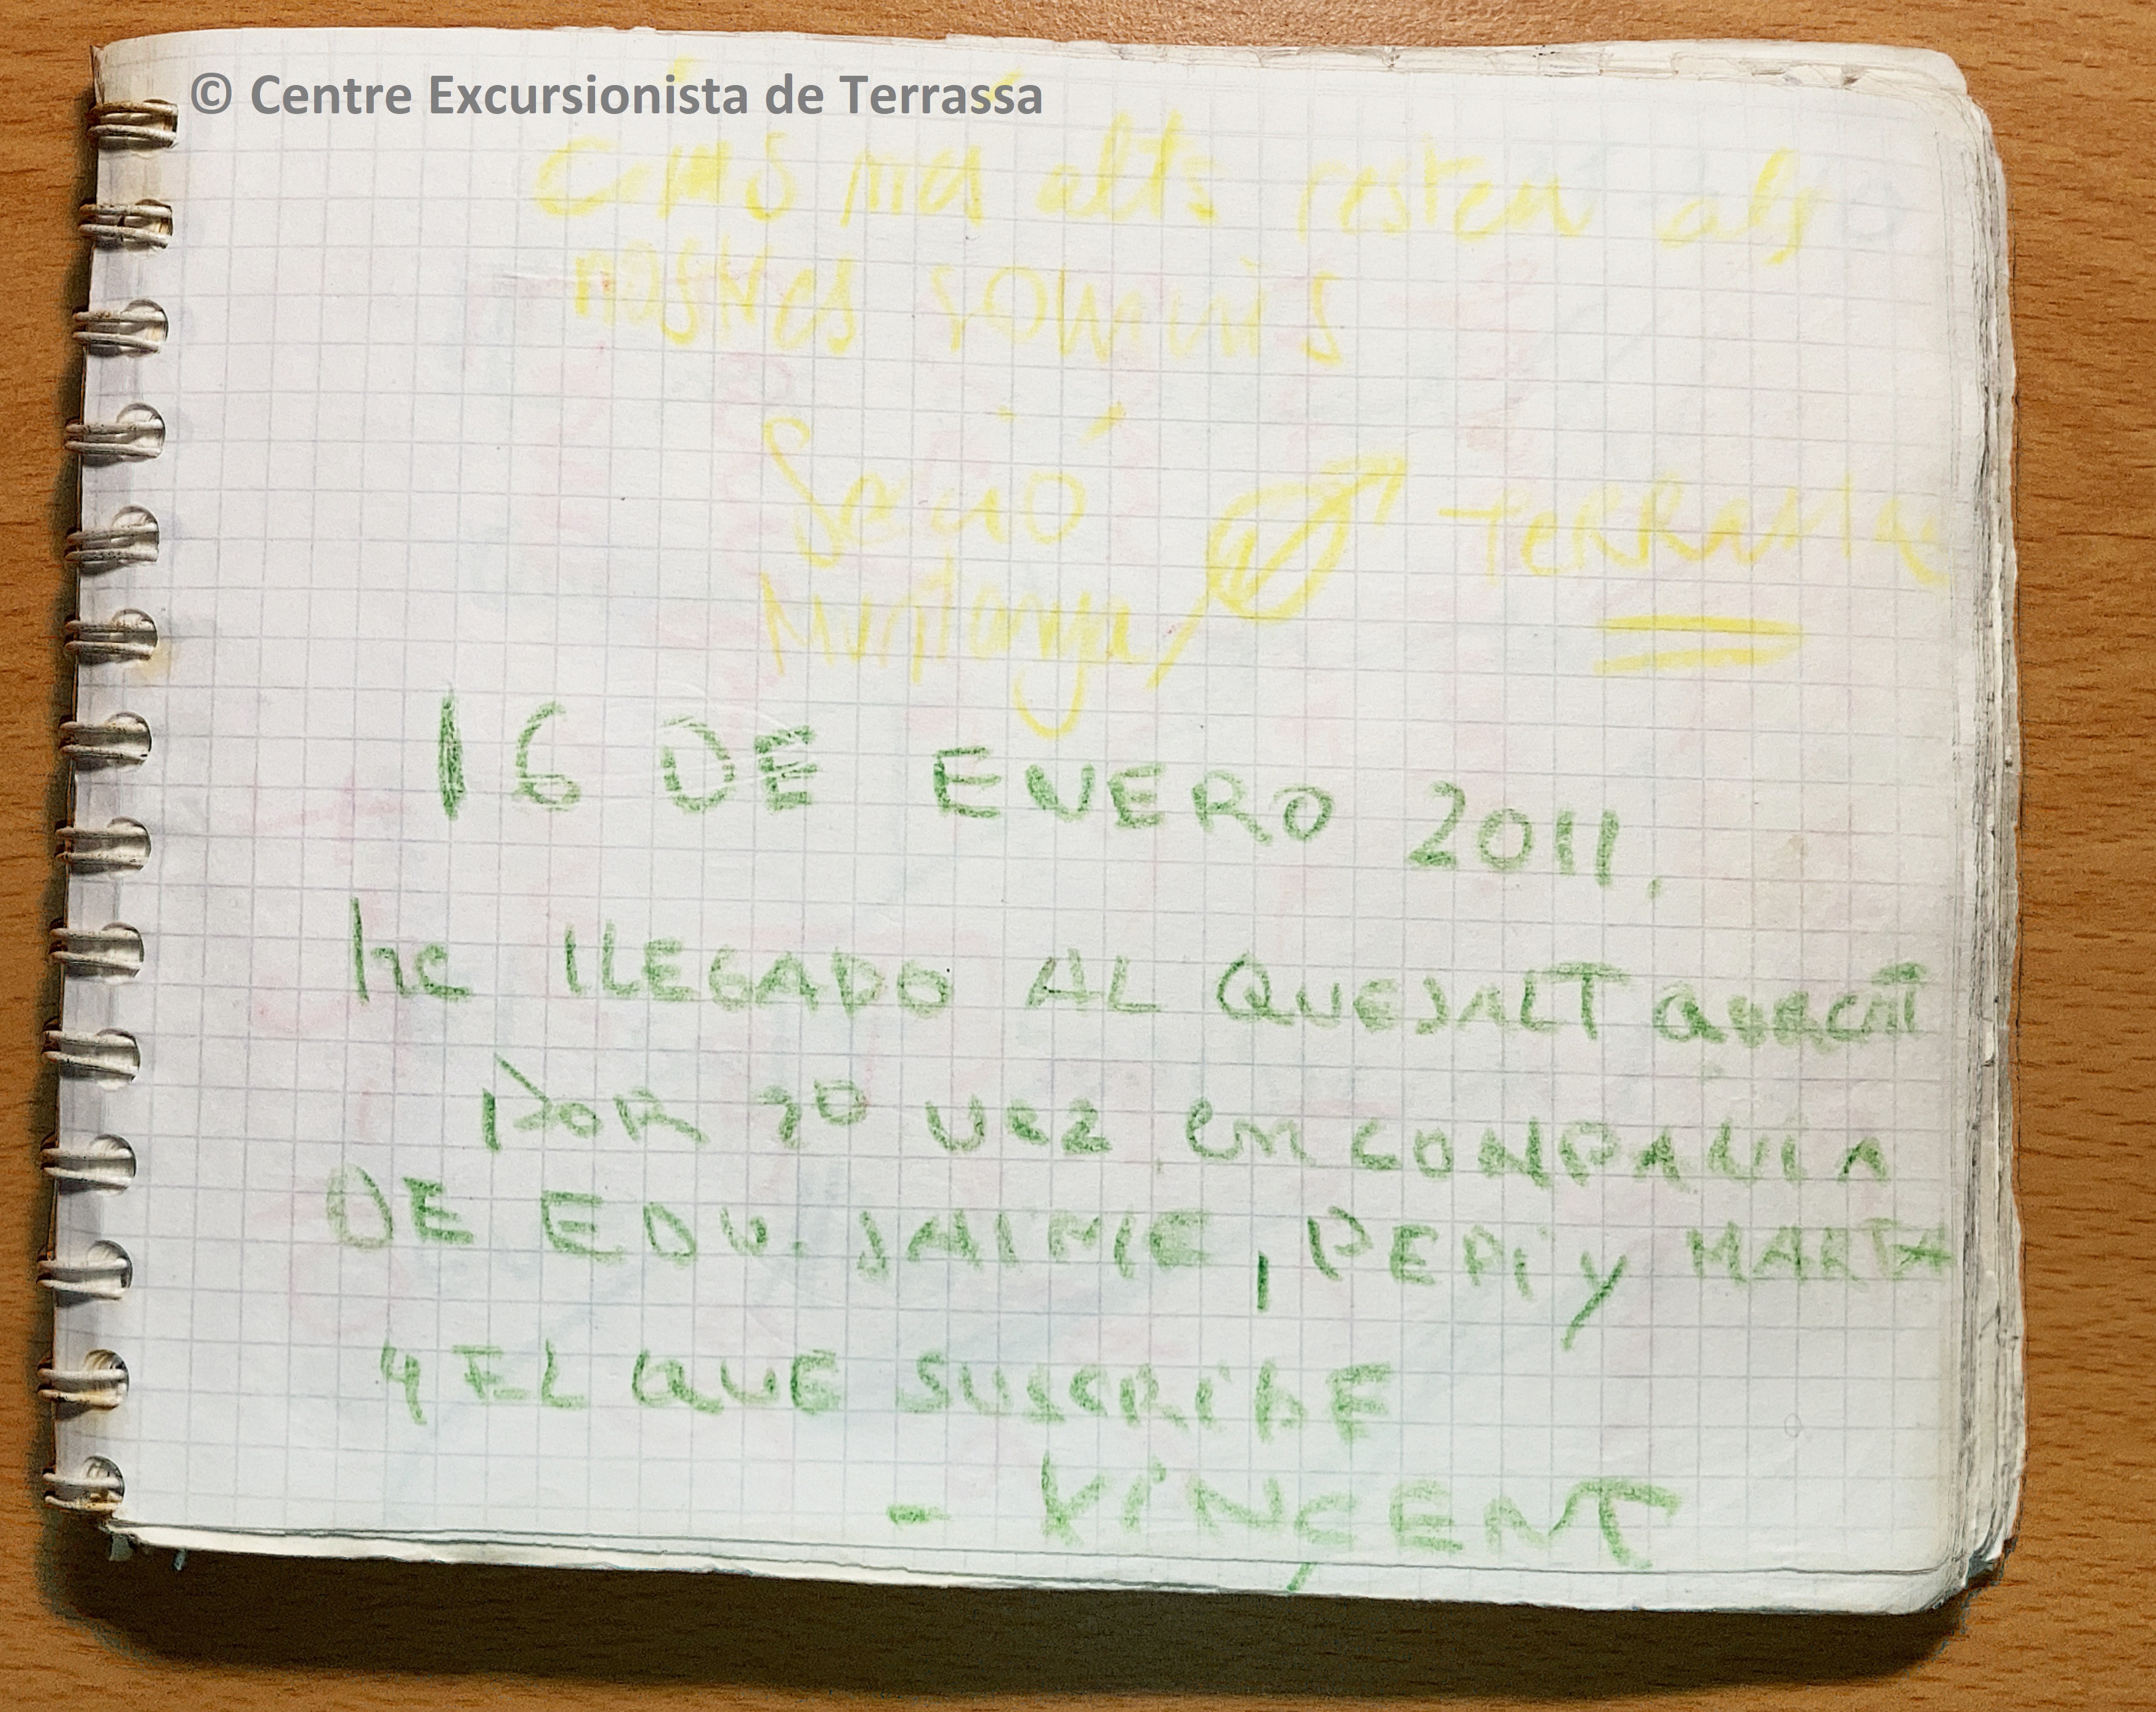 © Centre Excursionista de Terrassa
cims més alts resten als
nostres somnis
Secció
Muntanya
16 DE ENERO 2011.
he llEGADO AL QUEJALT
POR 20 VEZ en COMPANIA
DE EDU. JAIME, PEPI y MARTA
y EL QUE SUSCRIBE
- VINCENT